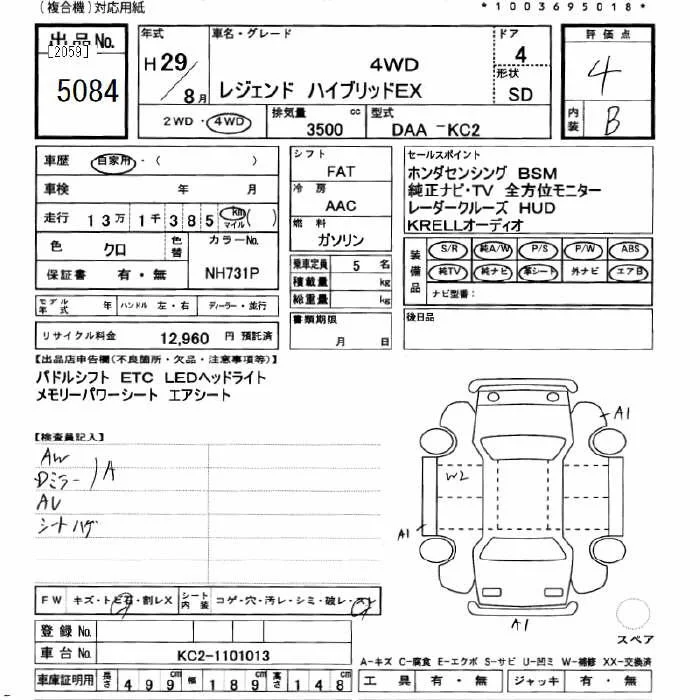 (複合機)対応用紙
*1003695018*
出品No.
[2059]
5084
年式
H29/8月
車名・グレード
4WD
レジェンド ハイブリッドEX
ドア
4
形状
SD
2WD・4WD
排気量
3500 cc
型式
DAA-KC2
評価点
4
内装
B
車歴 自家用・( )
車検 年 月
走行 13万1千385 km マイル ( )
色 クロ 色替
カラーNo.
NH731P
保証書 有・無
モデル年式 年 ハンドル 左・右 ディーラー・並行
リサイクル料金 12,960 円 預託済
シフト
FAT
冷房
AAC
燃料
ガソリン
乗車定員 5 名
積載量 kg
総重量 kg
書類期限
月 日
セールスポイント
ホンダセンシング BSM
純正ナビ・TV 全方位モニター
レーダークルーズ HUD
KRELLオーディオ
装備品
S/R 純A/W P/S P/W ABS
純TV 純ナビ 革シート 外ナビ エアB
ナビ型番:
後日品
【出品店申告欄(不良箇所・欠品・注意事項等)】
パドルシフト ETC LEDヘッドライト
メモリーパワーシート エアシート
【検査員記入】
AW
Dミラー )A
AU
シートハゲ
A1
W2
A1
A1
FW キズ・トビ石・割レX シート内装 コゲ・穴・汚レ・シミ・破レ・スレ
登録No.
車台No. KC2-1101013
車庫証明用 長さ 499cm 幅 189cm 高さ 148cm
スペア
A-キズ C-腐食 E-エクボ S-サビ U-凹ミ W-補修 XX-交換済
工具 有・無 ジャッキ 有・無